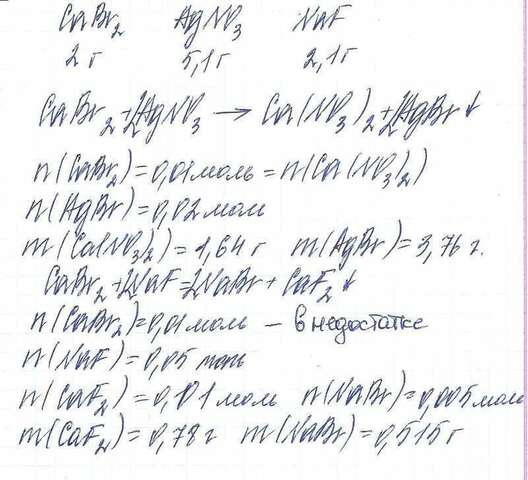 CaBr2 AgNO3 NaF
2 г 5,1 г 2,1 г
CaBr2 + 2AgNO3 → Ca(NO3)2 + 2AgBr↓
n(CaBr2) = 0,01 моль = n(Ca(NO3)2)
n(AgBr) = 0,02 мол
m(Ca(NO3)2) = 1,64 г m(AgBr) = 3,76 г.
CaBr2 + 2NaF = 2NaBr + CaF2↓
n(CaBr2) = 0,01 моль – в недостатке
n(NaF) = 0,05 моль
n(CaF2) = 0,01 мол n(NaBr) = 0,005 мол
m(CaF2) = 0,78 г m(NaBr) = 0,515 г